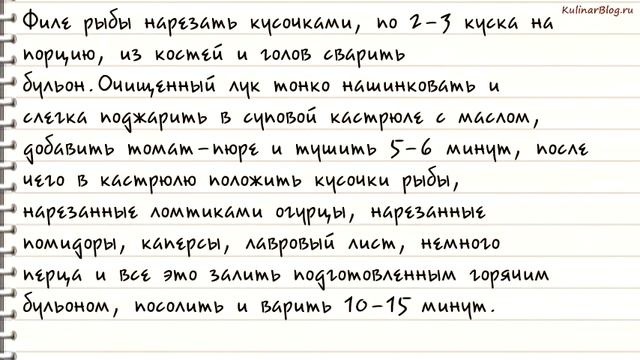 KulinarBlog.ru
Филе рыбы нарезать кусочками, по 2-3 куска на
порцию, из костей и голов сварить
бульон.Очищенный лук тонко нашинковать и
слегка поджарить в суповой кастрюле с маслом,
добавить томат-пюре и тушить 5-6 минут, после
чего в кастрюлю положить кусочки рыбы,
нарезанные ломтиками огурцы, нарезанные
помидоры, каперсы, лавровый лист, немного
перца и все это залить подготовленным горячим
бульоном, посолить и варить 10-15 минут.